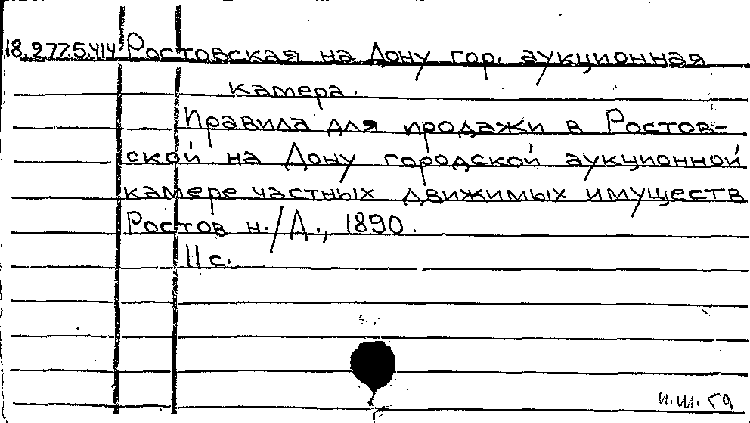 18.277.5.414 Ростовская на Дону гор. аукционная
камера.
Правила для продажи в Ростов-
ской на Дону городской аукционной
камере частных движимых имуществ
Ростов н./Д., 1890.
11 с.